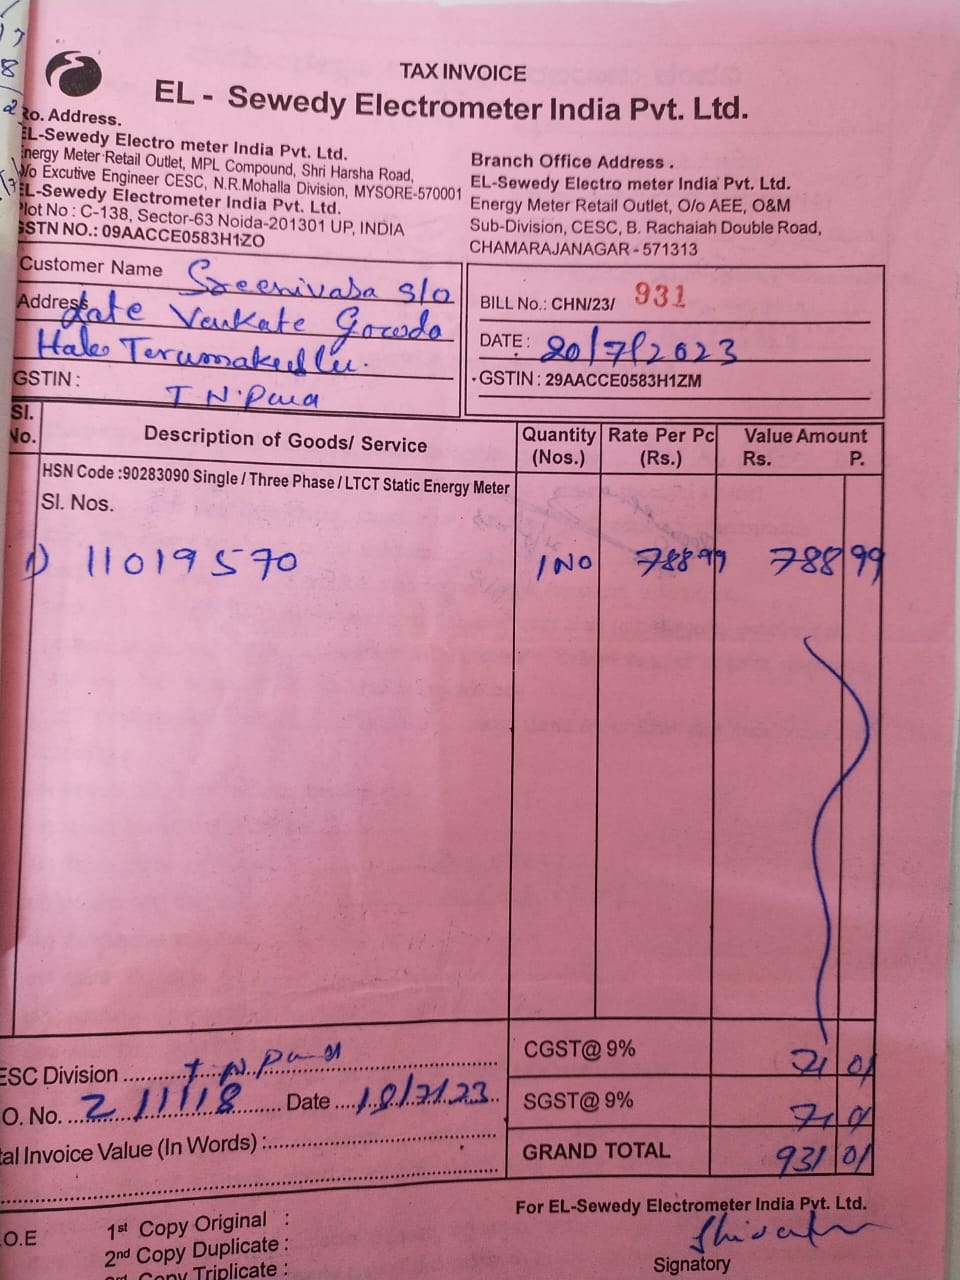 TAX INVOICE
EL - Sewedy Electrometer India Pvt. Ltd.
Ro. Address.
EL-Sewedy Electro meter India Pvt. Ltd.
Energy Meter Retail Outlet, MPL Compound, Shri Harsha Road,
O/o Excutive Engineer CESC, N.R.Mohalla Division, MYSORE-570001
EL-Sewedy Electrometer India Pvt. Ltd.
Plot No : C-138, Sector-63 Noida-201301 UP, INDIA
GSTN NO.: 09AACCE0583H1ZO
Branch Office Address .
EL-Sewedy Electro meter India Pvt. Ltd.
Energy Meter Retail Outlet, O/o AEE, O&M
Sub-Division, CESC, B. Rachaiah Double Road,
CHAMARAJANAGAR - 571313
Customer Name Sreenivasa S/o
Address Late Venkate Gowda
Hale
GSTIN : T N Pura
BILL No.: CHN/23/ 931
DATE : 20/7/2023
GSTIN : 29AACCE0583H1ZM
Sl. No. Description of Goods/ Service Quantity (Nos.) Rate Per Pc (Rs.) Value Amount Rs. P.
HSN Code :90283090 Single / Three Phase / LTCT Static Energy Meter
Sl. Nos.
1) 11019570 1 NO 788 99 788 99
CGST@ 9% 71 01
ESC Division T.N. Pura
SGST@ 9% 71 01
O. No. 211118 Date 18/7/23
GRAND TOTAL 931 01
tal Invoice Value (In Words) :
For EL-Sewedy Electrometer India Pvt. Ltd.
.O.E
1st Copy Original :
2nd Copy Duplicate :
3rd Copy Triplicate :
Signatory